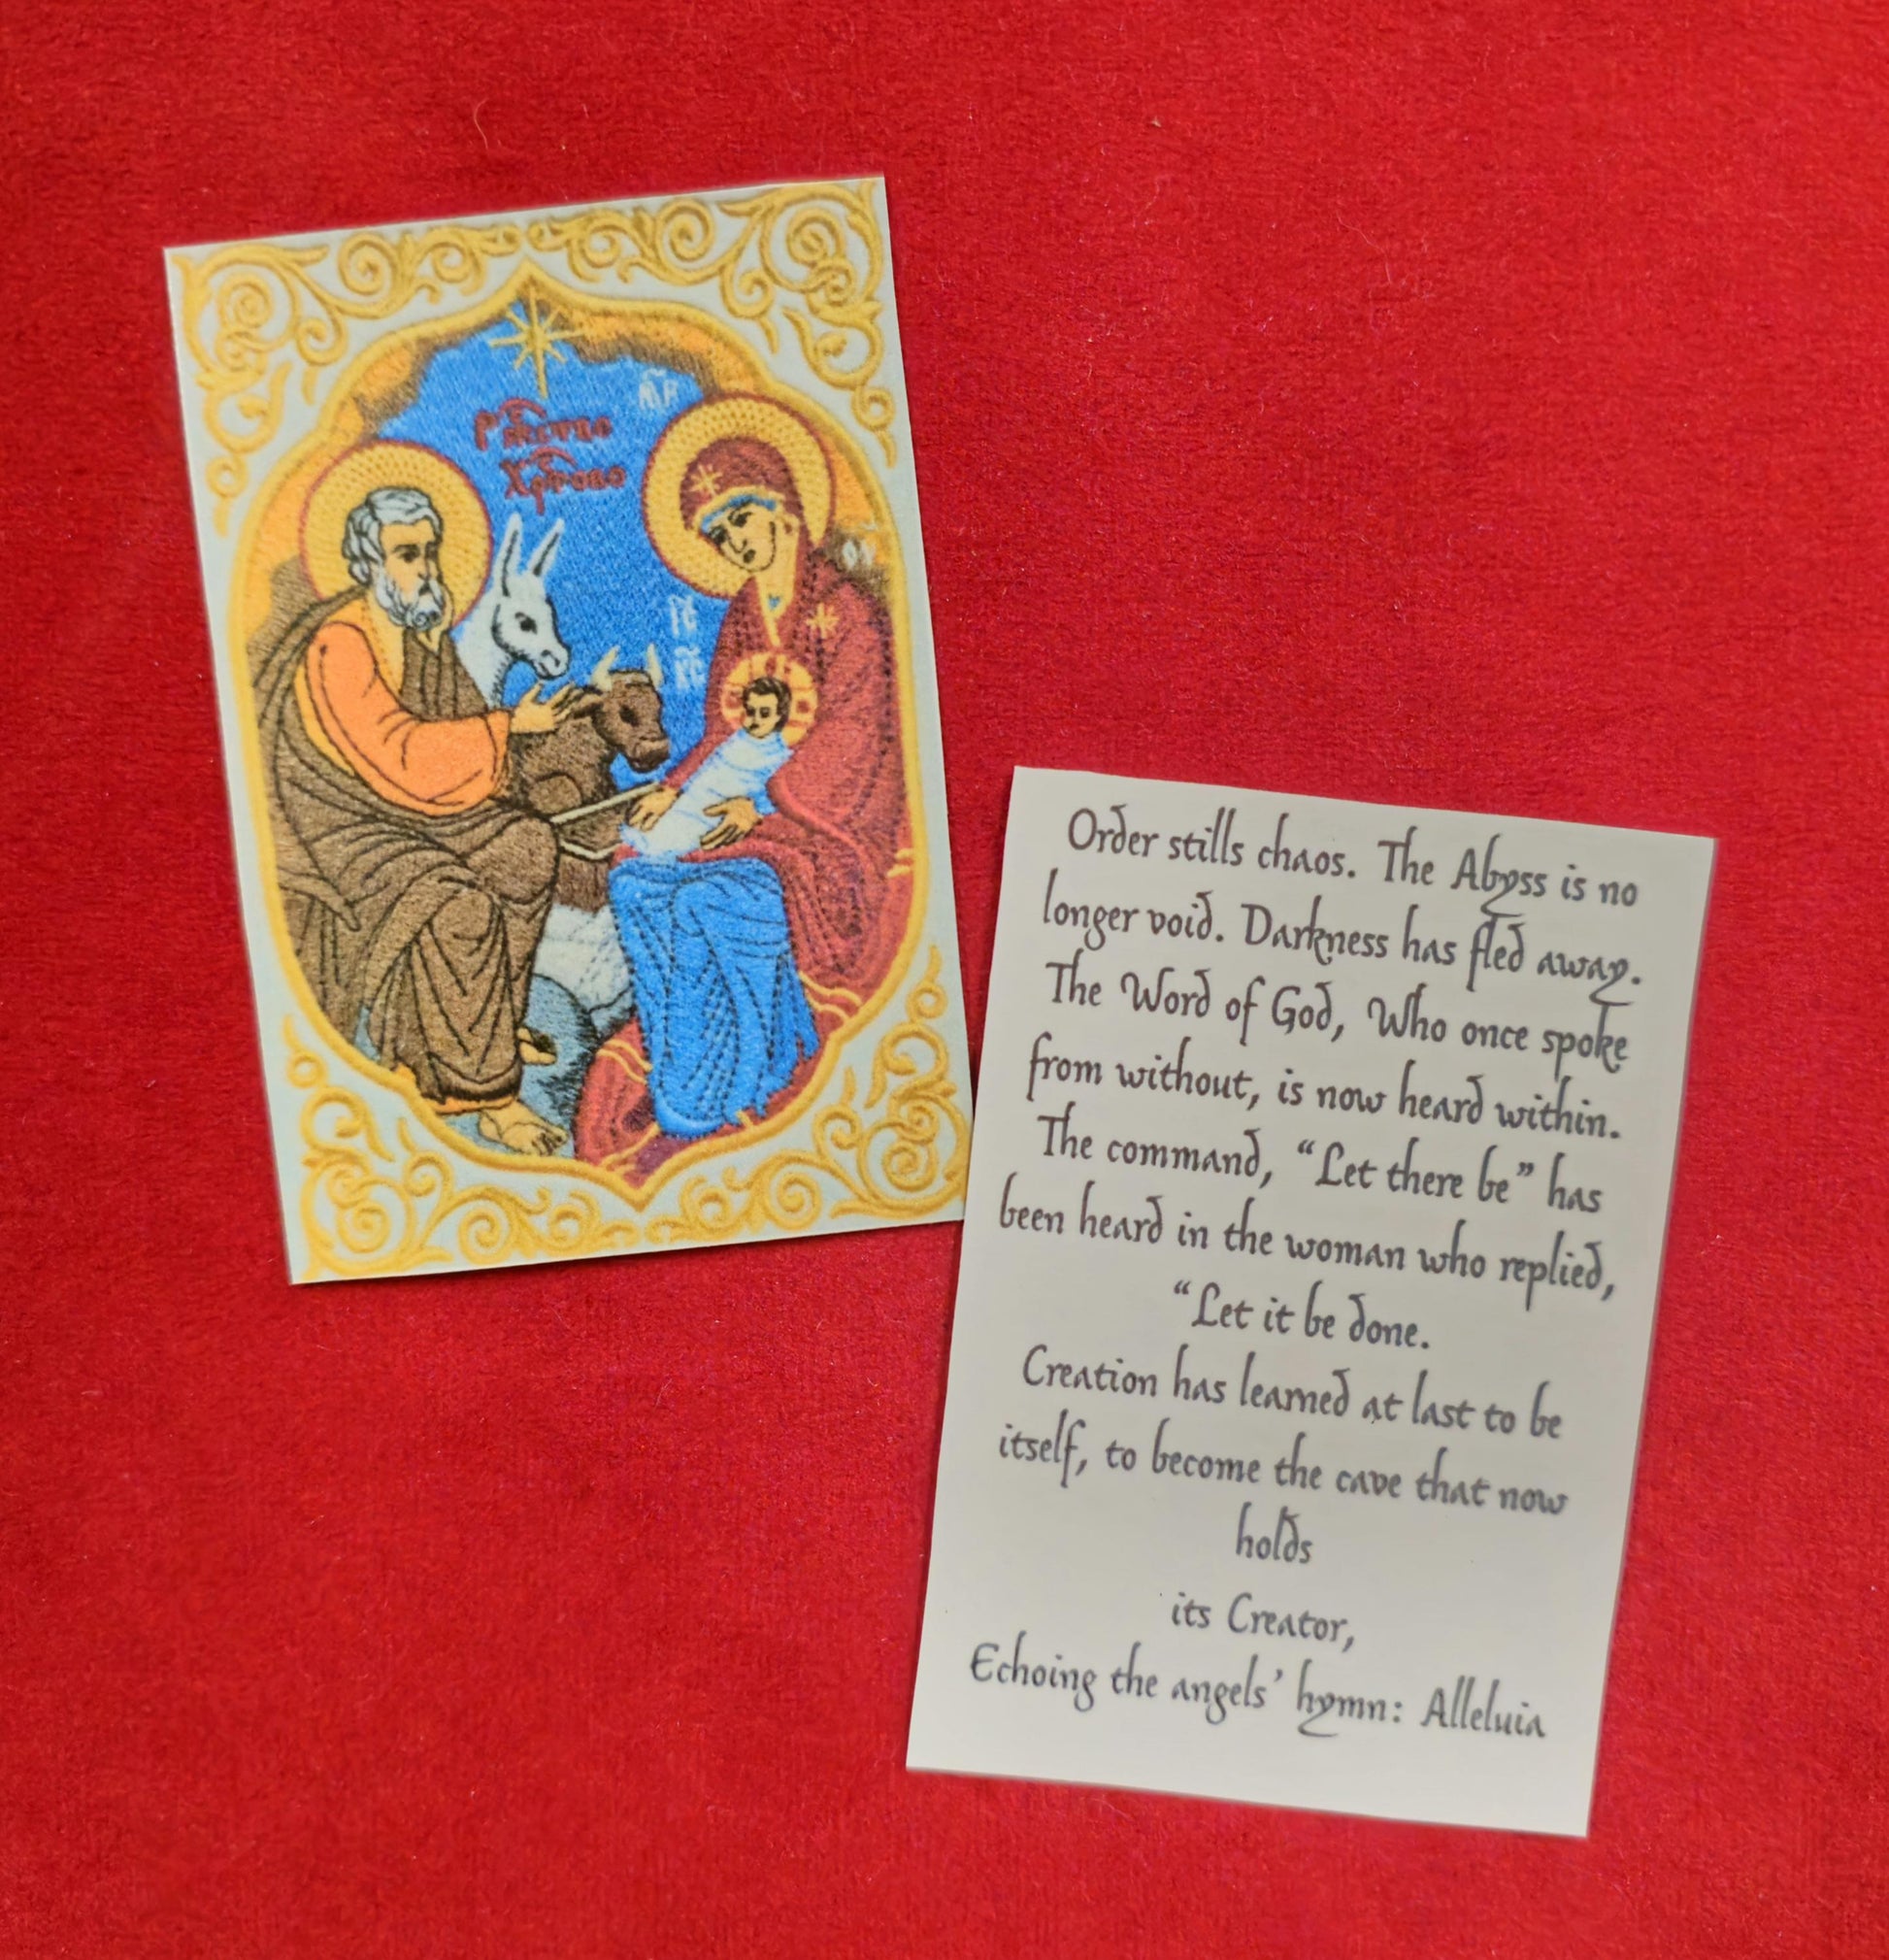 М҃Р
Ѳ҃У
Р҃жство
Хр҃тово
І҃С
Х҃С
Order stills chaos. The Abyss is no
longer void. Darkness has fled away.
The Word of God, Who once spoke
from without, is now heard within.
The command, “Let there be” has
been heard in the woman who replied,
“Let it be done.
Creation has learned at last to be
itself, to become the cave that now
holds
its Creator,
Echoing the angels’ hymn: Alleluia